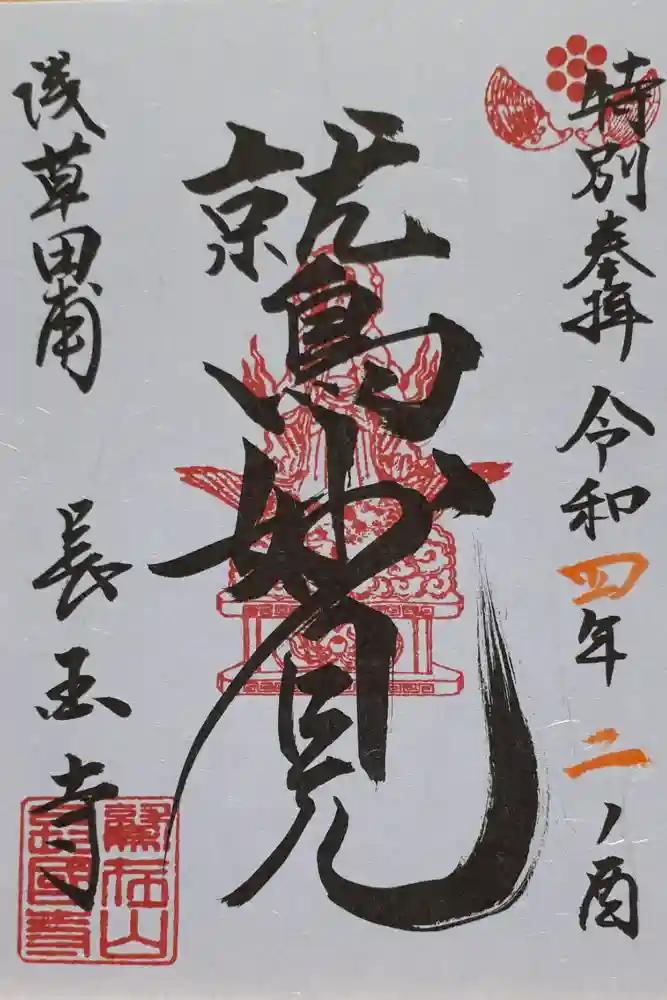 特別奉拝 令和四年 二ノ酉
鷲妙見
浅草田甫 長国寺
鷲在山
長國寺